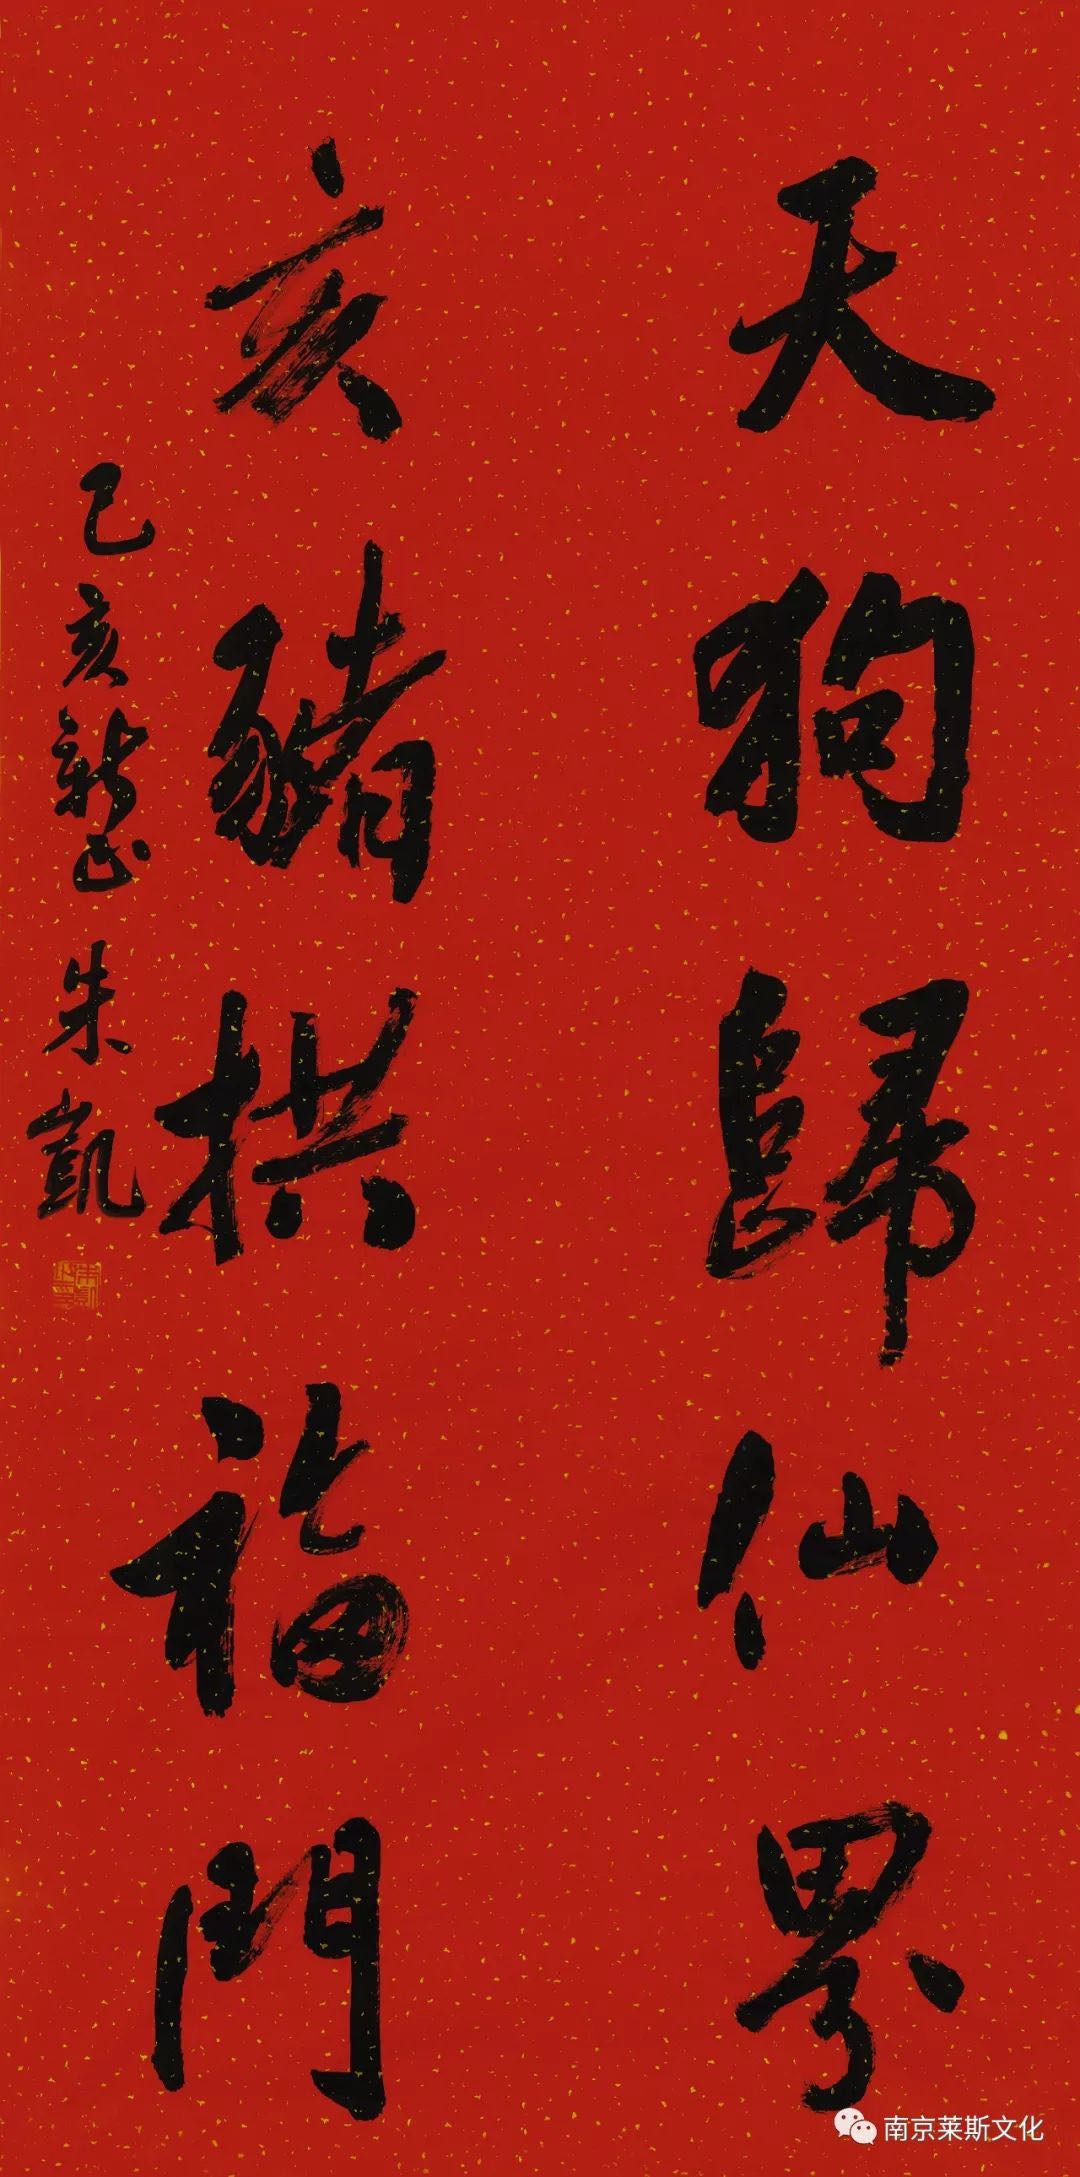 天狗歸仙界
亥豬拱福門
己亥新正 朱凱
南京莱斯文化